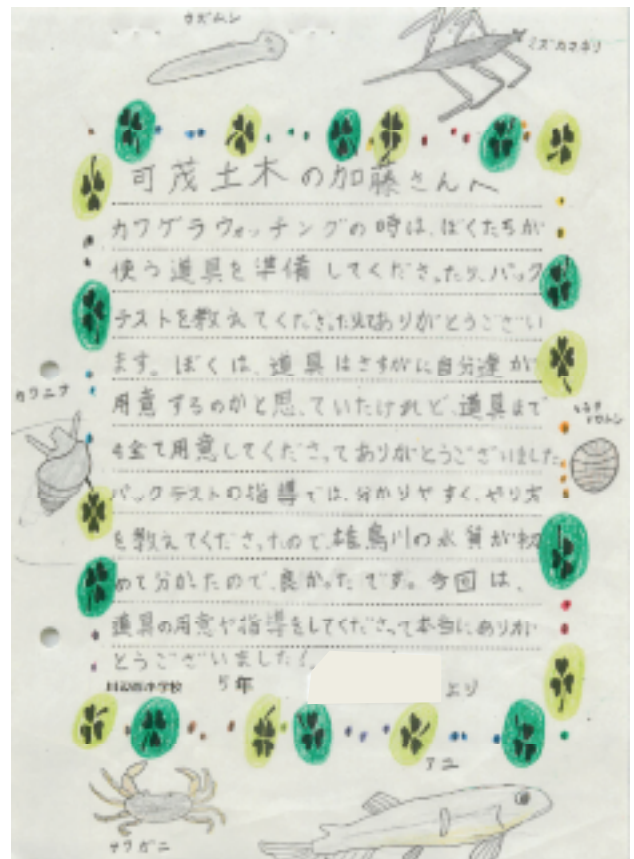 ウズムシ
ミズカマキリ
可茂土木の加藤さんへ
カワゲラウォッチングの時は、ぼくたちが
使う道具を準備してくださったり、パック
テストを教えてくださったりしてありがとうござい
ます。ぼくは、道具はさすがに自分達が
用意するのかと思っていたけれど、道具まで
カワニナ
も全て用意してくださってありがとうございました。
パックテストの指導では、分かりやすく、やり方
を教えてくださったので、雄鳥川の水質が初
めて分かったので、良かったです。今回は、
道具の用意や指導をしてくださって本当にありが
とうございました!
小学校 5年 より
アユ
サワガニ